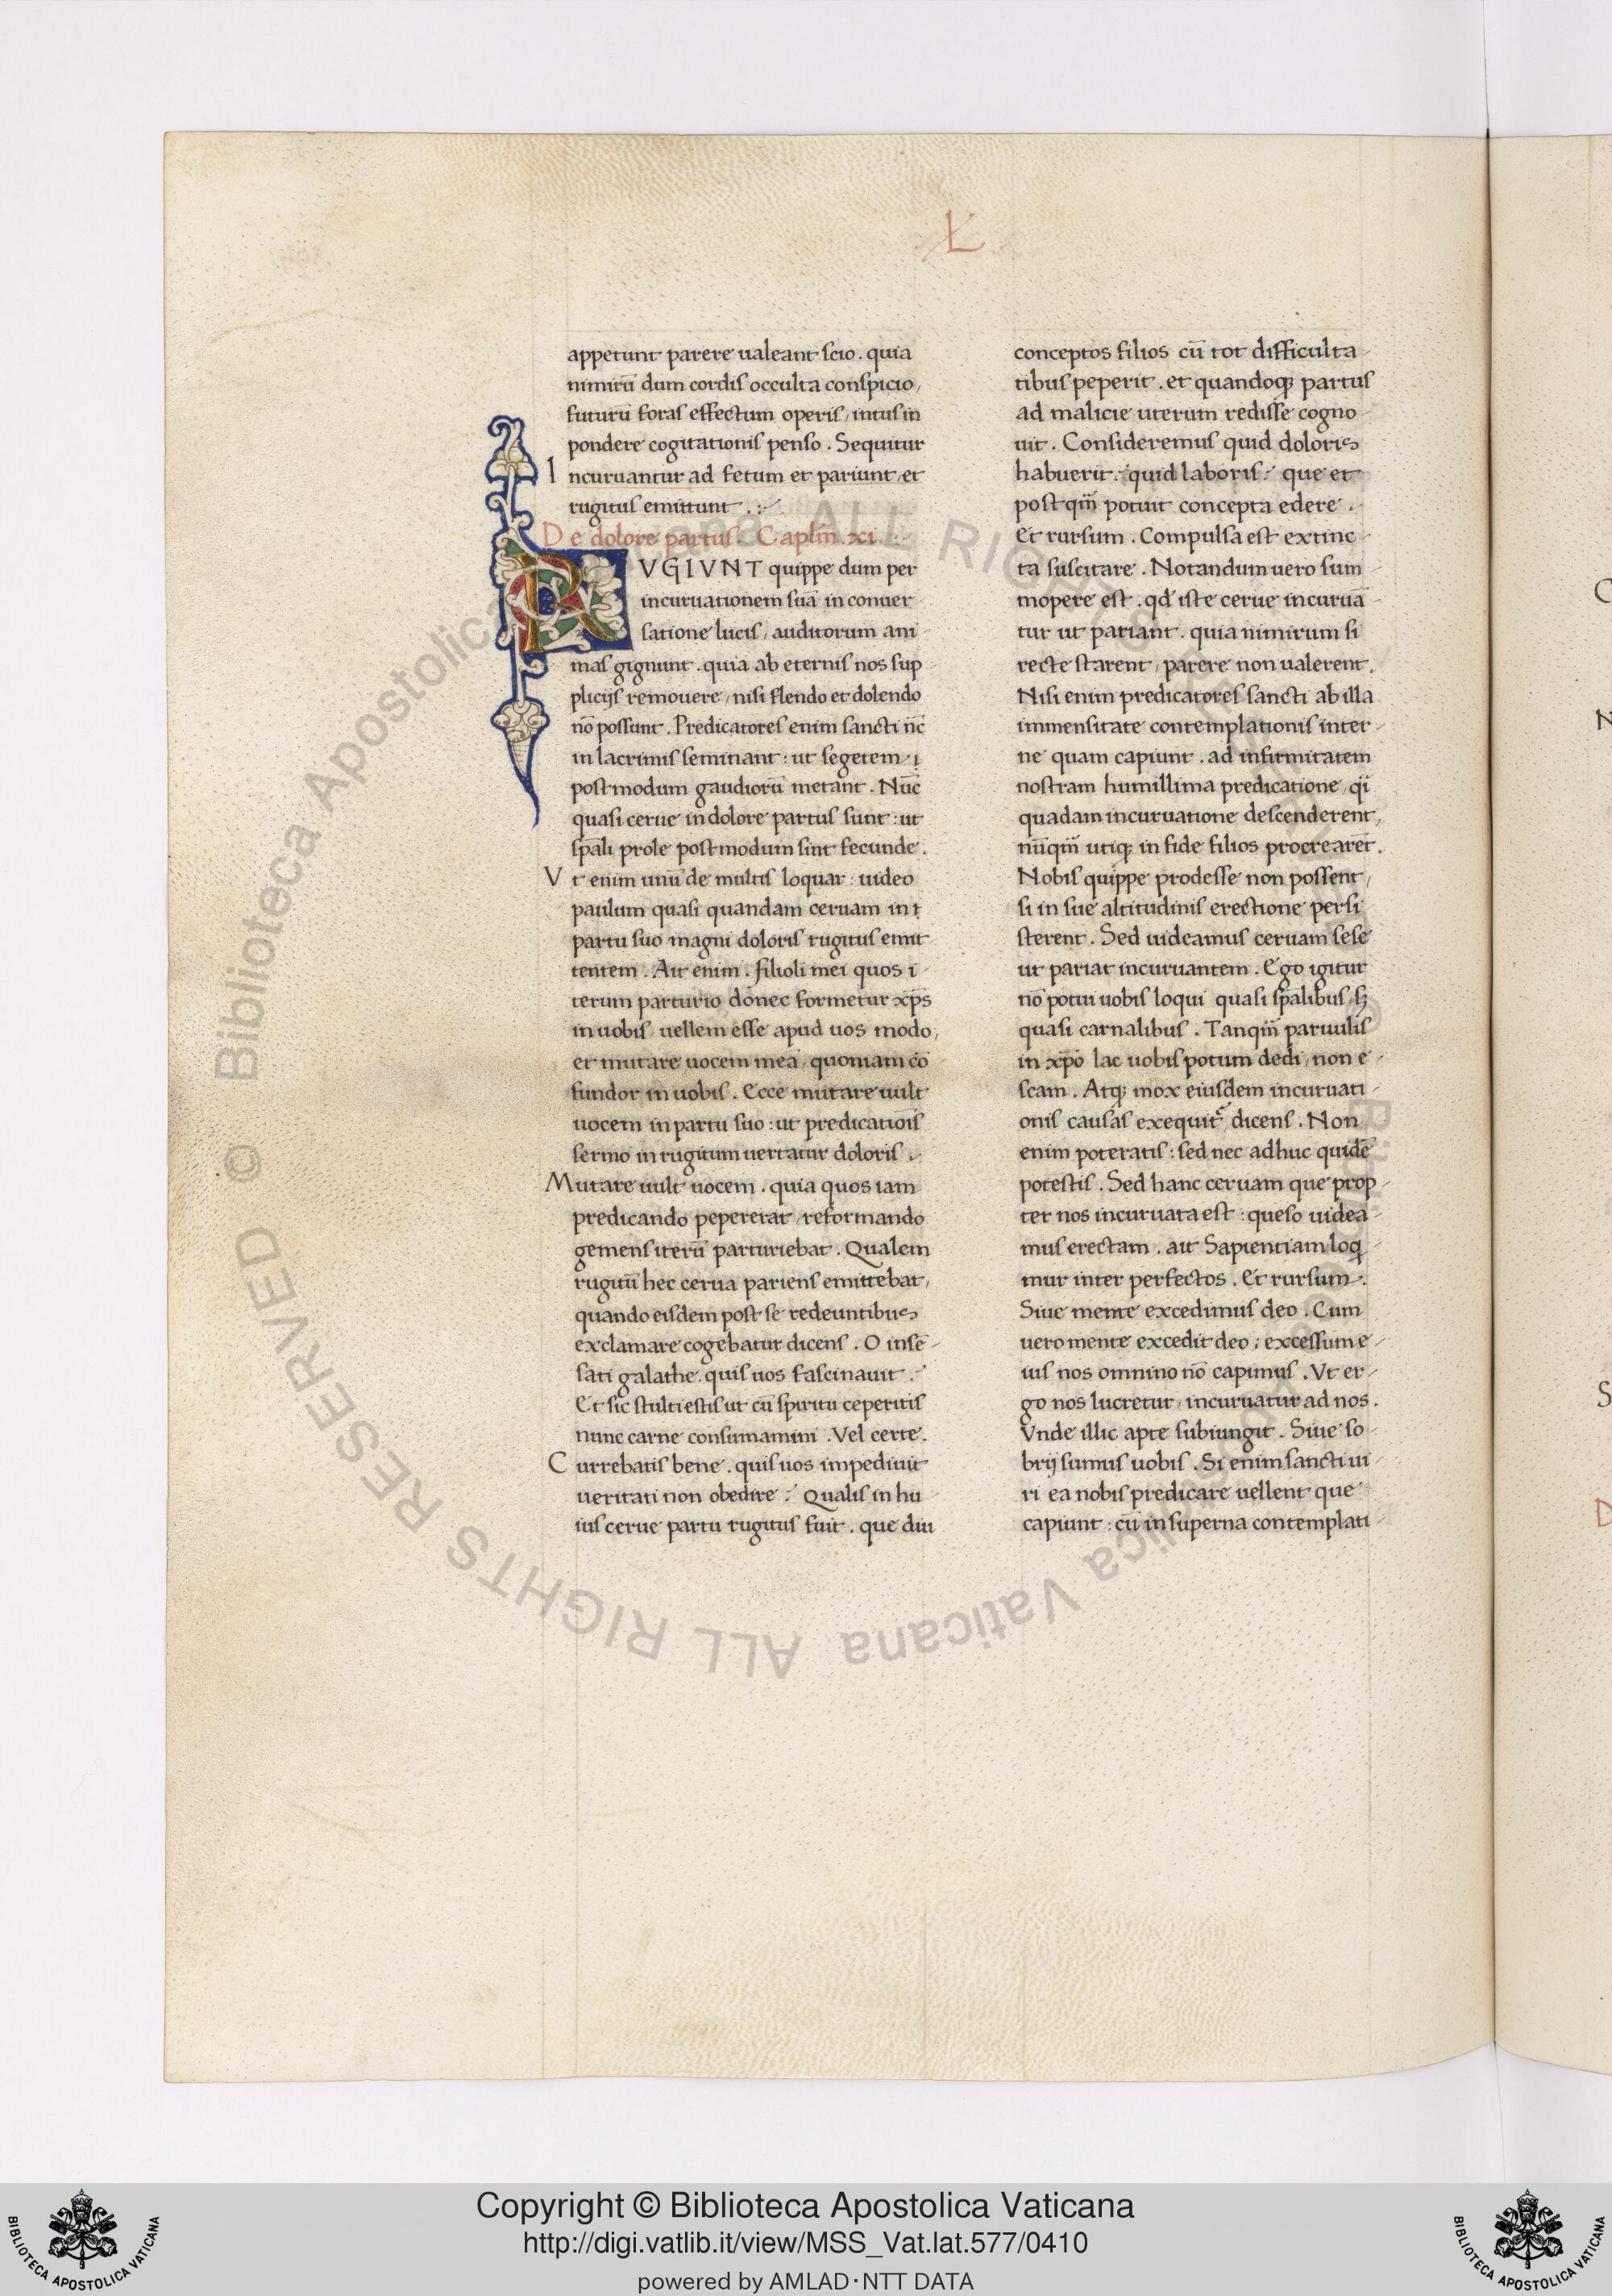 Ł
appetunt parere ualeant scio . quia
nimirū dum cordis occulta conspicio,
futurū foras effectum operis, intus in
pondere cogitationis penso . Sequitur
Incuruantur ad fetum et pariunt, et
rugitus emittunt .
De dolore partus . Caplm̄ .xi.
RVGIVNT quippe dum per
incuruationem suā in conuer-
satione lucis, auditorum ani-
mas gignunt . quia ab eternis nos sup-
plicijs remouere, nisi flendo et dolendo
nō possunt . Predicatores enim sancti nc̄
in lacrimis seminant : ut segetem
postmodum gaudiorū metant . Nūc
quasi cerue in dolore partus sunt : ut
sp̄ali prole postmodum sint fecunde .
Vt enim unū de multis loquar : uideo
paulum quasi quandam ceruam in
partu suo magni doloris rugitus emit-
tentem . Ait enim . filioli mei quos i-
terum parturio donec formetur xp̄s
in uobis, uellem esse apud uos modo,
et mutare uocem meā, quoniam cō
fundor in uobis . Ecce mutare uult
uocem in partu suo : ut predicatiōis
sermo in rugitum uertatur doloris .
Mutare uult uocem . quia quos iam
predicando pepererat, reformando
gemens iterū parturiebat . Qualem
rugitū hec cerua pariens emittebat,
quando eisdem post se redeuntibus
exclamare cogebatur dicens . O insē-
sati galathe . quis uos fascinauit .
Et sic stulti estis ut cū spiritu ceperitis
nunc carne consumamini . Vel certe .
Currebatis bene . quis uos impediuit
ueritati non obedire : Qualis in hu-
ius cerue partu rugitus fuit . que diu
conceptos filios cū tot difficulta-
tibus peperit . et quandoq; partus
ad malicie uterum redisse cogno-
uit . Consideremus quid doloris
habuerit : quid laboris : que et
postqm̄ potuit concepta edere .
Et rursum . Compulsa est extinc-
ta suscitare . Notandum uero sum-
mopere est . qd̄ iste cerue incuruā-
tur ut pariant . quia nimirum si
recte starent, parere non ualerent .
Nisi enim predicatores sancti ab illa
immensitate contemplationis inter-
ne quam capiunt . ad infirmitatem
nostram humillima predicatione, qi
quadam incuruatione descenderent,
nūqm̄ utiq; in fide filios procrearēt .
Nobis quippe prodesse non possent,
si in sue altitudinis erectione persi-
sterent . Sed uideamus ceruam sese
ut pariat incuruantem . Ego igitur
nō potui uobis loqui quasi sp̄alibus, sꝫ
quasi carnalibus . Tanqm̄ paruulis
in xp̄o lac uobis potum dedi, non e-
scam . Atq; mox eiusdem incuruati-
onis causas exequit᷑ dicens . Non
enim poteratis : sed nec adhuc quidē
potestis . Sed hanc ceruam que prop-
ter nos incuruata est : queso uidea-
mus erectam . ait Sapientiam loq-
mur inter perfectos . Et rursum .
Siue mente excedimus deo . Cum
uero mente excedit deo ; excessum e-
ius nos omnino nō capimus . Vt er-
go nos lucretur, incuruatur ad nos .
Vnde illic apte subiungit . Siue so-
brij sumus uobis . Si enim sancti ui-
ri ea nobis predicare uellent que
capiunt : cū in superna contemplati-
C
N
S
D
Biblioteca Apostolica Vaticana ALL RIGHTS RESERVED ©
Copyright © Biblioteca Apostolica Vaticana
http://digi.vatlib.it/view/MSS_Vat.lat.577/0410
powered by AMLAD·NTT DATA
BIBLIOTECA APOSTOLICA VATICANA
BIBLIOTECA APOSTOLICA VATICANA